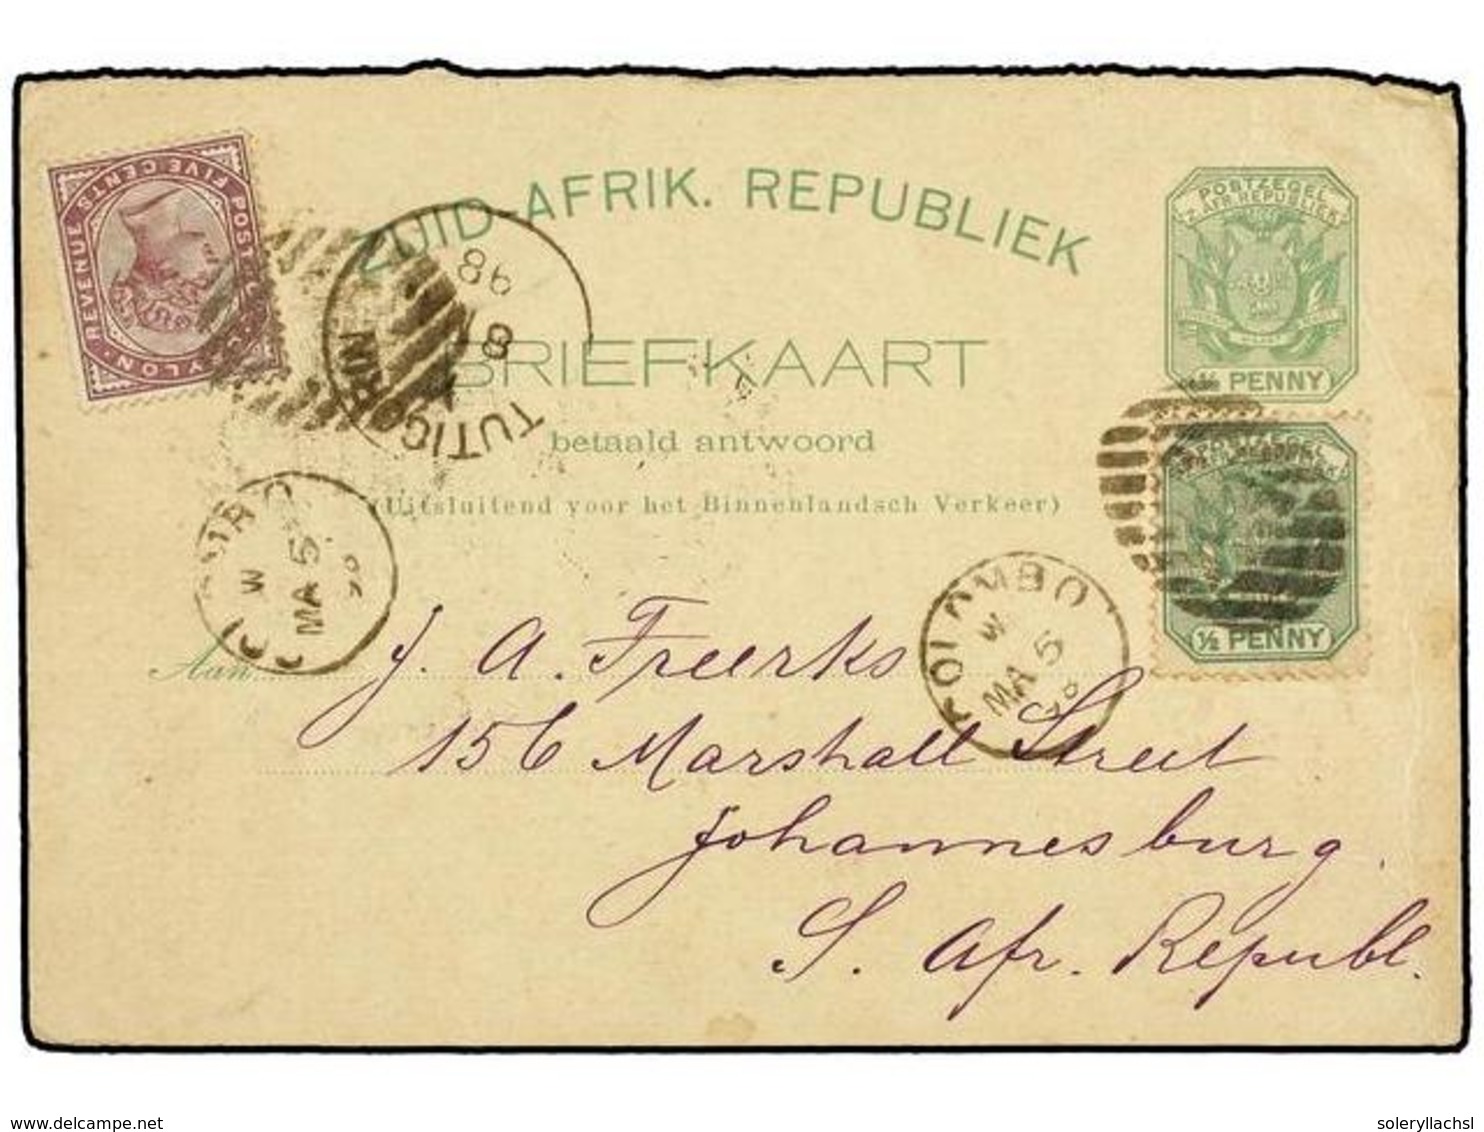 ZUID-AFRIK. REPUBLIEK
BRIEFKAART
betaald antwoord
(Uitsluitend voor het Binnenlandsch Verkeer)
POSTZEGEL
Z. AFR. REPUBLIEK
½ PENNY
½ PENNY
CEYLON · REVENUE
POSTAGE
FIVE CENTS
98
8
TUTICORIN
COLOMBO
W
MA 5
98
COLOMBO
W
MA 5
98
Aan
J. A. Freerks
156 Marshall Street
Johannesburg.
S. Afr. Republ.
www.delcampe.net
soleryllachsl